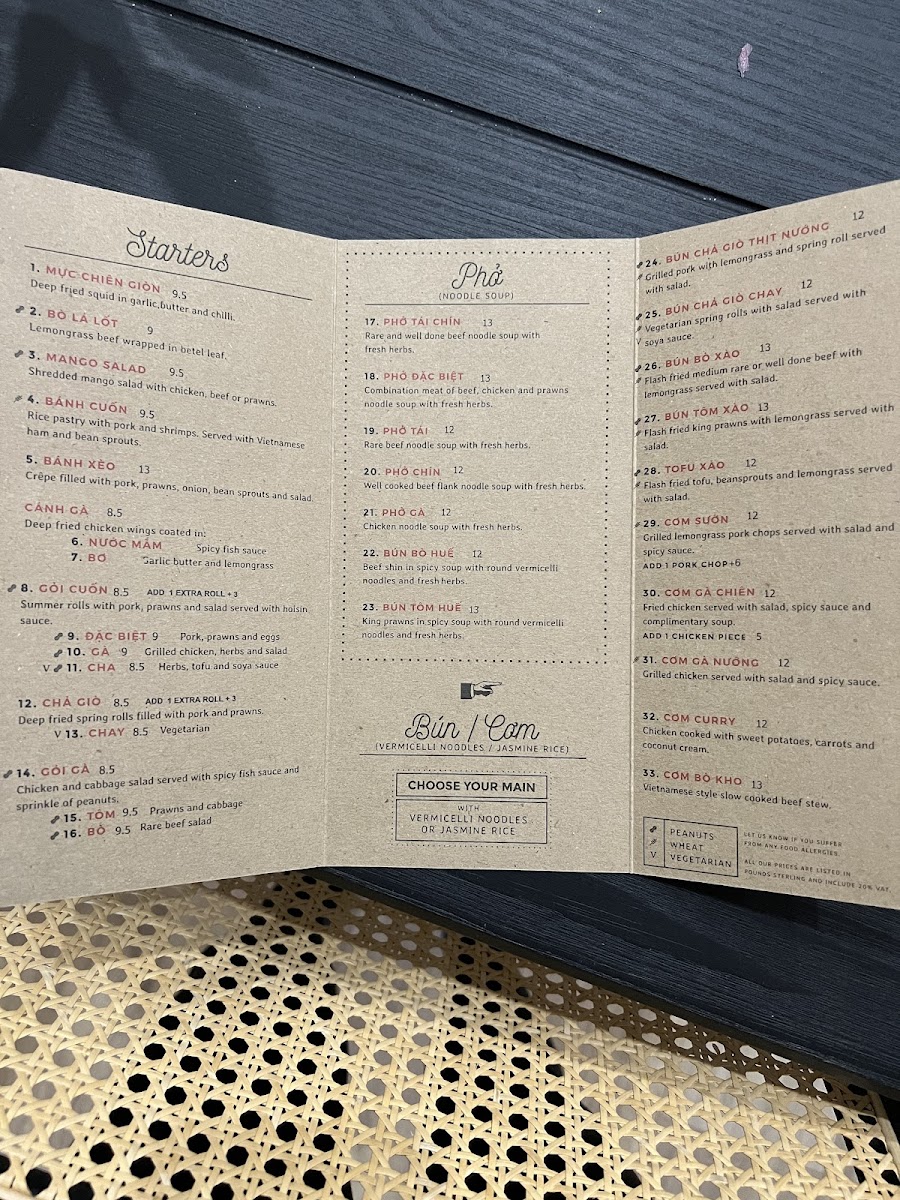 Starters
1. MỰC CHIÊN GIÒN 9.5
Deep fried squid in garlic,butter and chilli.
2. BÒ LÁ LỐT 9
Lemongrass beef wrapped in betel leaf.
3. MANGO SALAD 9.5
Shredded mango salad with chicken, beef or prawns.
4. BÁNH CUỐN 9.5
Rice pastry with pork and shrimps. Served with Vietnamese
ham and bean sprouts.
5. BÁNH XÈO 13
Crêpe filled with pork, prawns, onion, bean sprouts and salad.
CÁNH GÀ 8.5
Deep fried chicken wings coated in:
6. NƯỚC MẮM Spicy fish sauce
7. BƠ Garlic butter and lemongrass
8. GỎI CUỐN 8.5 ADD 1 EXTRA ROLL + 3
Summer rolls with pork, prawns and salad served with hoisin
sauce.
9. ĐẶC BIỆT 9 Pork, prawns and eggs
10. GÀ 9 Grilled chicken, herbs and salad
V 11. CHẠ 8.5 Herbs, tofu and soya sauce
12. CHẢ GIÒ 8.5 ADD 1 EXTRA ROLL + 3
Deep fried spring rolls filled with pork and prawns.
V 13. CHAY 8.5 Vegetarian
14. GỎI GÀ 8.5
Chicken and cabbage salad served with spicy fish sauce and
sprinkle of peanuts.
15. TÔM 9.5 Prawns and cabbage
16. BÒ 9.5 Rare beef salad
Phở
(NOODLE SOUP)
17. PHỞ TÁI CHÍN 13
Rare and well done beef noodle soup with
fresh herbs.
18. PHỞ ĐẶC BIỆT 13
Combination meat of beef, chicken and prawns
noodle soup with fresh herbs.
19. PHỞ TÁI 12
Rare beef noodle soup with fresh herbs.
20. PHỞ CHÍN 12
Well cooked beef flank noodle soup with fresh herbs.
21. PHỞ GÀ 12
Chicken noodle soup with fresh herbs.
22. BÚN BÒ HUẾ 12
Beef shin in spicy soup with round vermicelli
noodles and fresh herbs.
23. BÚN TÔM HUẾ 13
King prawns in spicy soup with round vermicelli
noodles and fresh herbs.
Bún / Cơm
(VERMICELLI NOODLES / JASMINE RICE)
CHOOSE YOUR MAIN
WITH
VERMICELLI NOODLES
OR JASMINE RICE
24. BÚN CHẢ GIÒ THỊT NƯỚNG 12
Grilled pork with lemongrass and spring roll served
with salad.
25. BÚN CHẢ GIÒ CHAY 12
Vegetarian spring rolls with salad served with
V soya sauce.
26. BÚN BÒ XÀO 13
Flash fried medium rare or well done beef with
lemongrass served with salad.
27. BÚN TÔM XÀO 13
Flash fried king prawns with lemongrass served with
salad.
28. TOFU XÀO 12
Flash fried tofu, beansprouts and lemongrass served
with salad.
29. CƠM SƯỜN 12
Grilled lemongrass pork chops served with salad and
spicy sauce.
ADD 1 PORK CHOP +6
30. CƠM GÀ CHIÊN 12
Fried chicken served with salad, spicy sauce and
complimentary soup.
ADD 1 CHICKEN PIECE 5
31. CƠM GÀ NƯỚNG 12
Grilled chicken served with salad and spicy sauce.
32. CƠM CURRY 12
Chicken cooked with sweet potatoes, carrots and
coconut cream.
33. CƠM BÒ KHO 13
Vietnamese style slow cooked beef stew.
PEANUTS
WHEAT
V VEGETARIAN
LET US KNOW IF YOU SUFFER
FROM ANY FOOD ALLERGIES.
ALL OUR PRICES ARE LISTED IN
POUNDS STERLING AND INCLUDE 20% VAT.